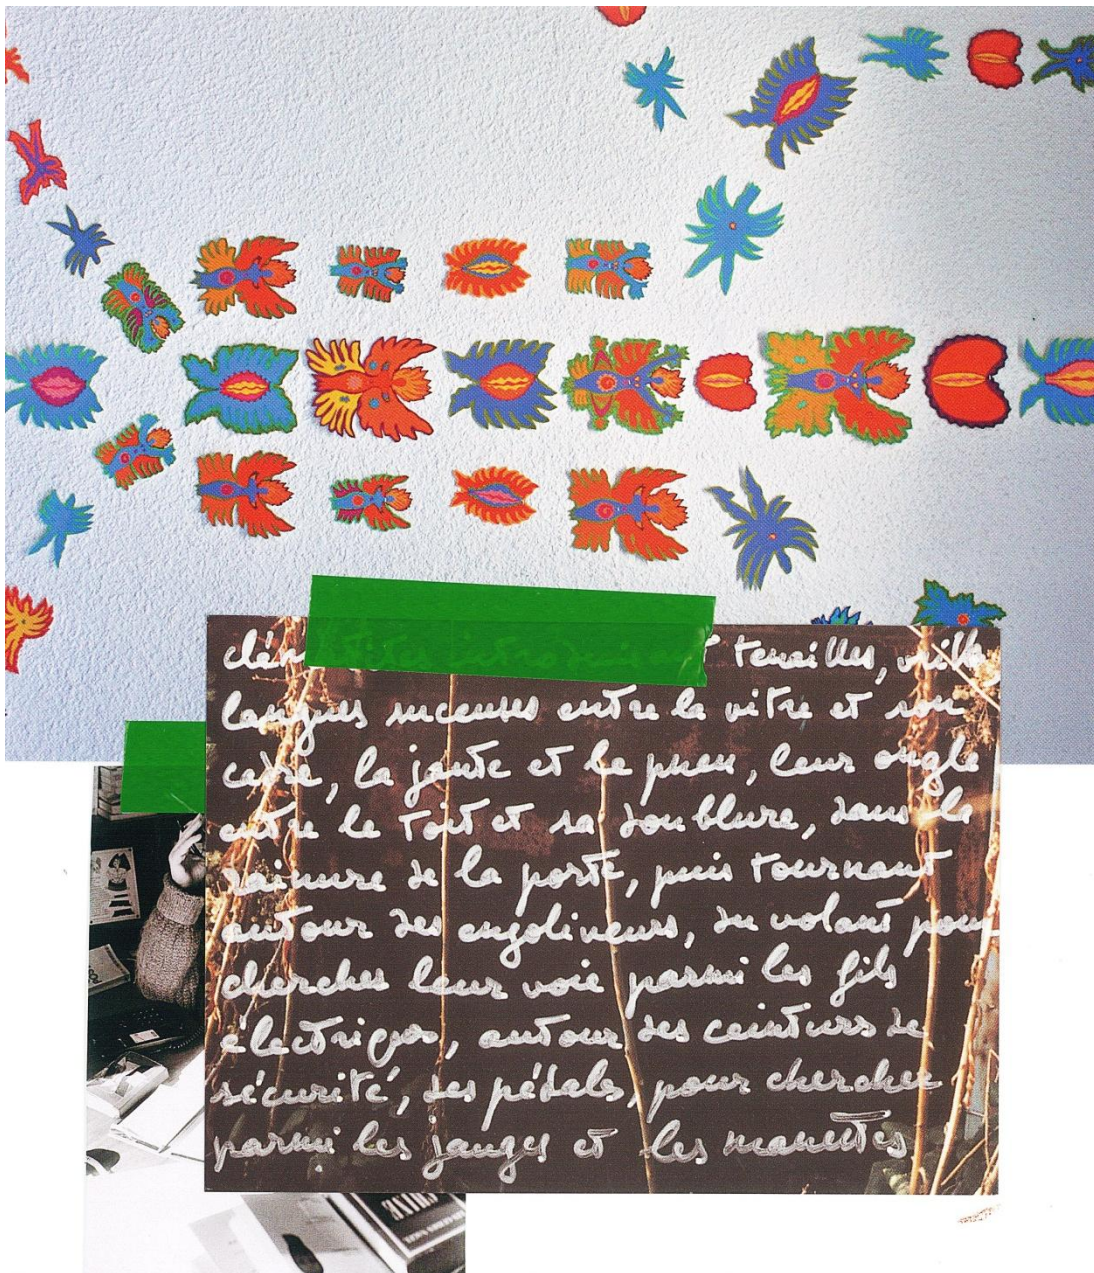 tenailles, vrille
langues suceuses entre la vitre et son
cadre, la jante et le pneu, leur ongle
entre le toit et sa doublure, dans la
rainure de la porte, puis tournant
autour des enjoliveurs, du volant pour
chercher leur voie parmi les fils
électriques, autour des ceintures de
sécurité, des pédales, pour chercher
parmi les jauges et les manettes
CHINE